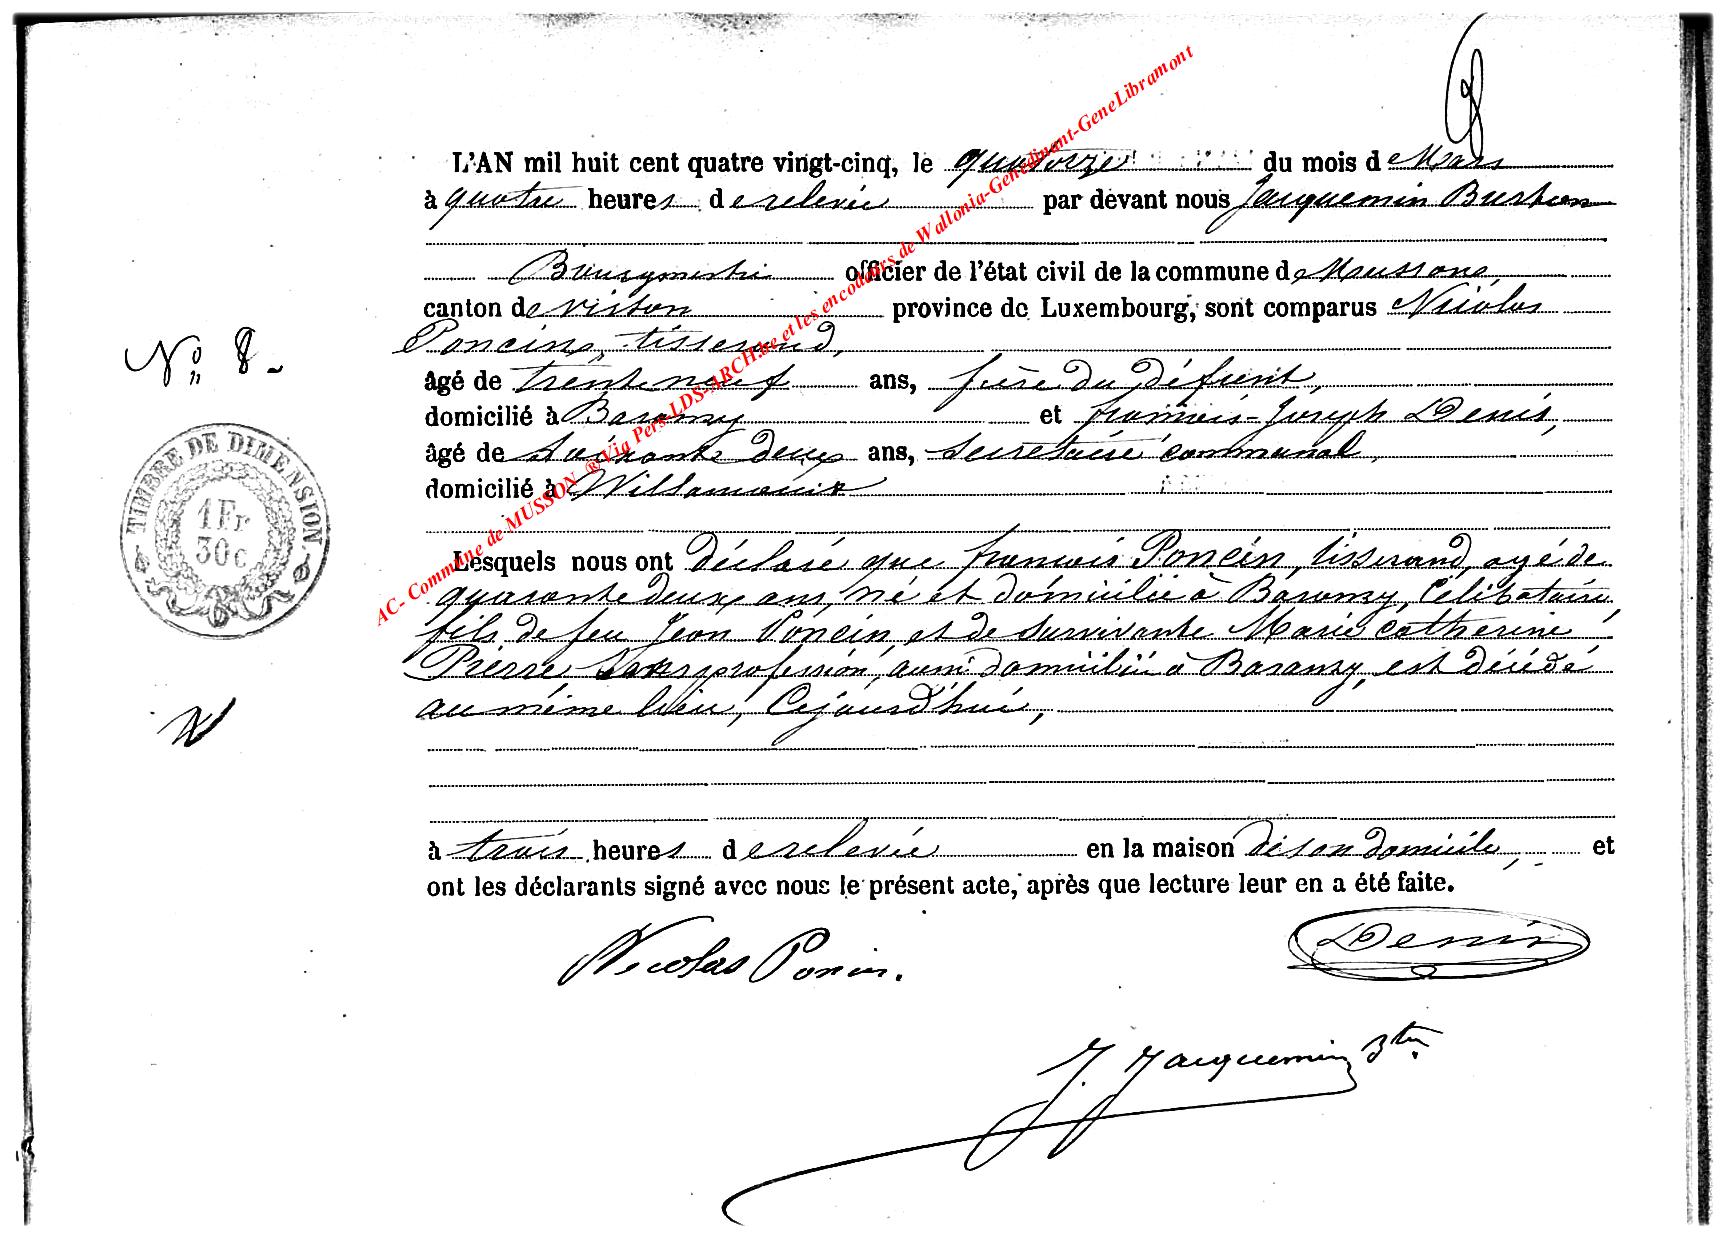 8
L'AN mil huit cent quatre vingt-cinq, le quatorze du mois de Mars
à quatre heures de relevée par devant nous Jacquemin Bastien
Bourgmestre officier de l'état civil de la commune de Mussons
canton de Virton province de Luxembourg, sont comparus Nicolas
Poncin, tisserand,
âgé de trente neuf ans, frère du défunt,
domicilié à Baranzy et françois-Joseph Denis,
âgé de soixante deux ans, secrétaire communal,
domicilié à Willancourt
Lesquels nous ont déclaré que françois Poncin, tisserand, agé de
quarante deux ans, né et domicilié à Baranzy, Célibataire,
fils de feu Jean Poncin, et de survivante Marie Catherine
Pierre sans profession, aussi domiciliée à Baranzy, est décédé
au même lieu, Cejourd'hui,
à trois heures de relevée en la maison de son domicile, et
ont les déclarants signé avec nous le présent acte, après que lecture leur en a été faite.
Nicolas Poncin.
Denis
J. Jacquemin Btn
No 8.
TIMBRE DE DIMENSION.
1 Fr
30c
AC- Commune de MUSSON ® Via Pers-LDS-ARCH.be et les encodeurs de Wallonia-Genedinant-GeneLibramont